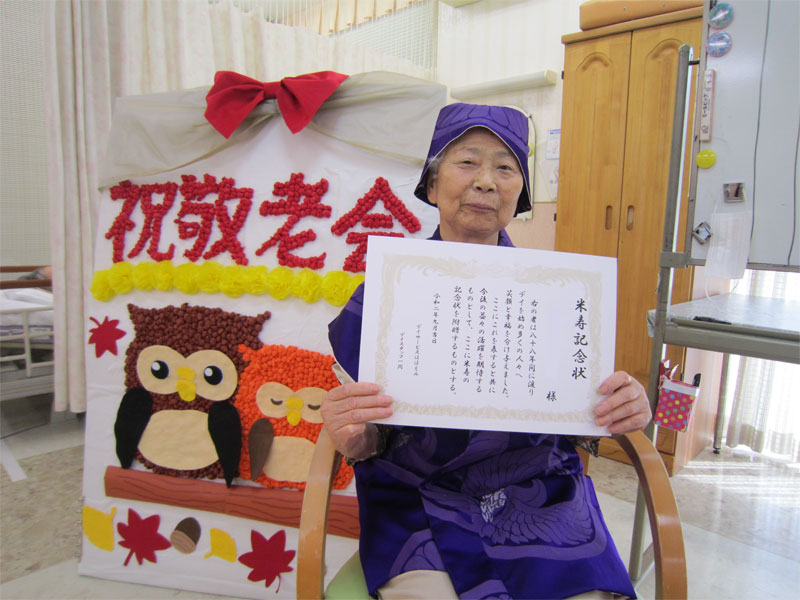 祝敬老会
米寿記念状
様
右の者は八十八年間に渡り
デイを始め多くの人々へ
笑顔と幸福を分け与えました。
ここにこれを表すると共に
今後の益々の活躍を期待する
ものとして、ここに米寿の
記念状を附贈するものとする。